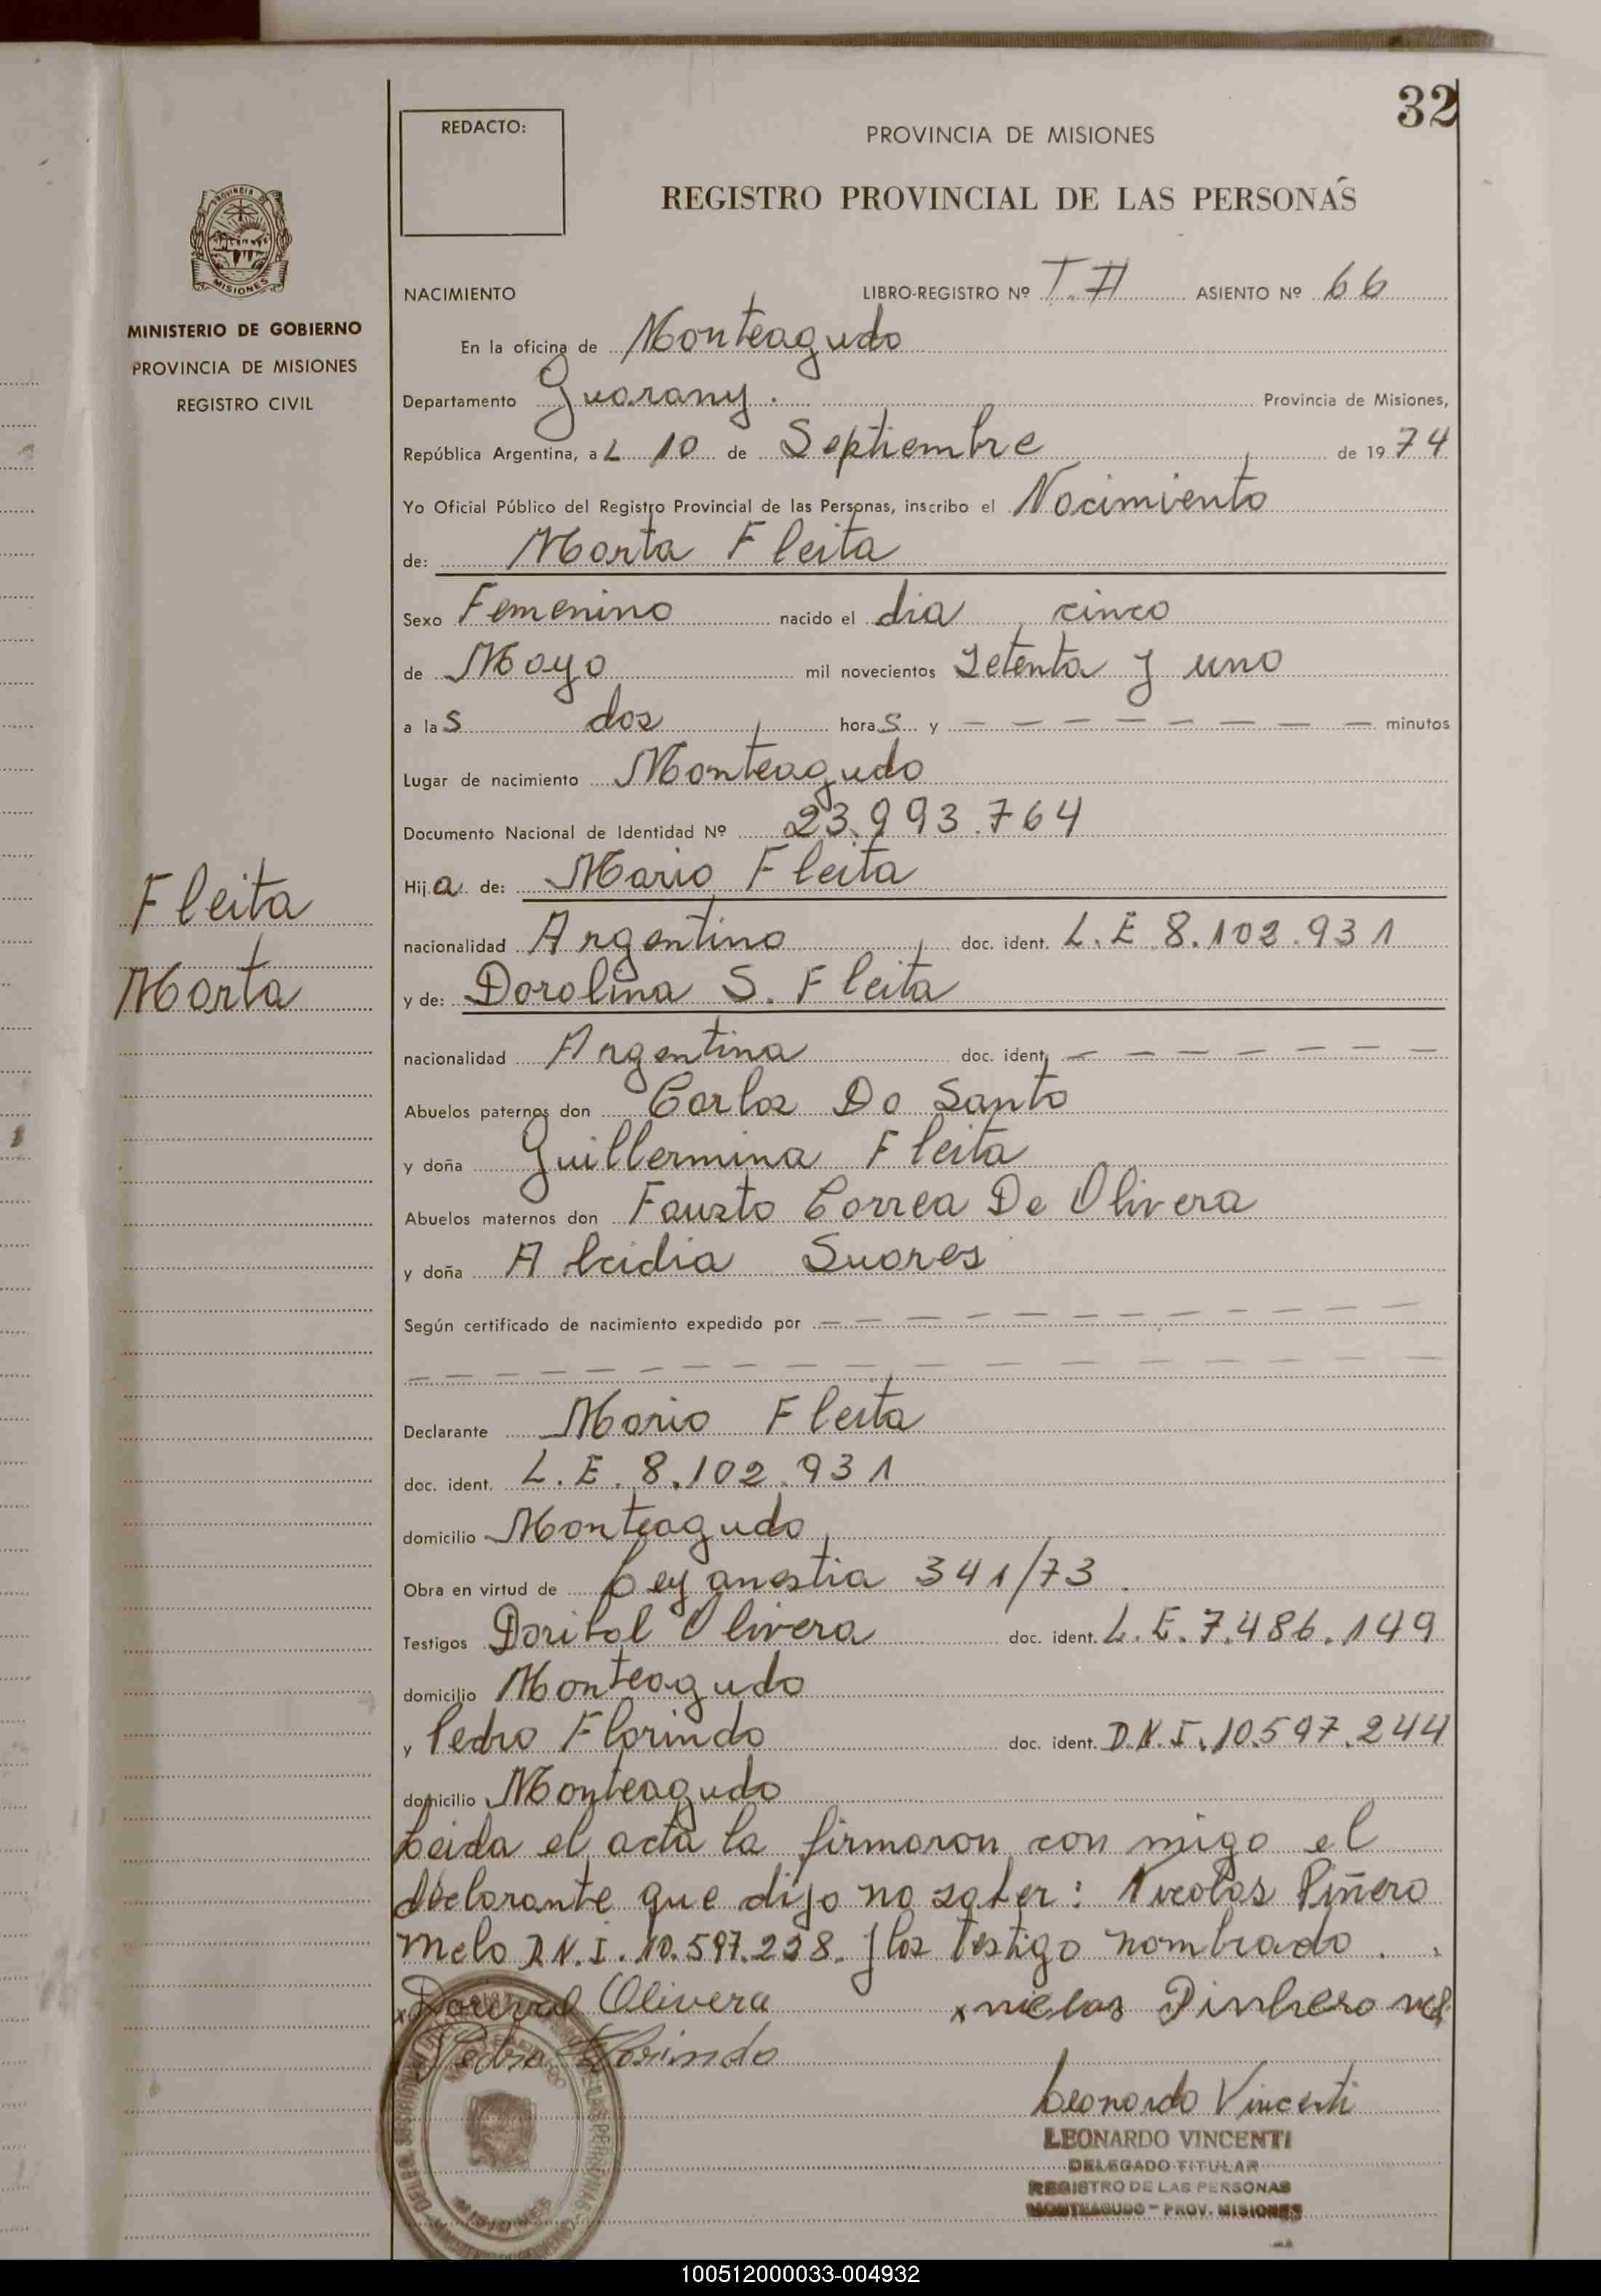 32
REDACTO:
PROVINCIA DE MISIONES
REGISTRO PROVINCIAL DE LAS PERSONAS
PROVINCIA DE
MISIONES
MINISTERIO DE GOBIERNO
PROVINCIA DE MISIONES
REGISTRO CIVIL
NACIMIENTO LIBRO-REGISTRO Nº T. II ASIENTO Nº 66
En la oficina de Monteagudo
Departamento Guarany. Provincia de Misiones,
República Argentina, a L 10 de Septiembre de 1974
Yo Oficial Público del Registro Provincial de las Personas, inscribo el Nacimiento
de: Marta Fleita
Sexo Femenino nacido el dia cinco
de Mayo mil novecientos Setenta y uno
a las dos horas y — — — — — — — — — minutos
Lugar de nacimiento Monteagudo
Documento Nacional de Identidad Nº 23.993.764
Hija de: Mario Fleita
Fleita
nacionalidad Argentino doc. ident. L.E 8.102.931
Marta
y de: Dorolina S. Fleita
nacionalidad Argentina doc. ident. — — — — — — —
Abuelos paternos don Carlos Do Santo
y doña Guillermina Fleita
Abuelos maternos don Fausto Correa De Olivera
y doña Alcidia Suares
Según certificado de nacimiento expedido por — — — — — — — — — — — —
— — — — — — — — — — — — — — — — — —
Declarante Mario Fleita
doc. ident. L.E. 8.102.931
domicilio Monteagudo
Obra en virtud de Ley anestia 341/73.
Testigos Doribal Olivera doc. ident. L.E. 7.486.149
domicilio Monteagudo
y Pedro Florindo doc. ident. D.N.I. 10.597.244
domicilio Monteagudo
Leida el acta la firmaron con migo el
declarante que dijo no saber: Nicolas Piñero
Melo D.N.I. 10.597.238. y los testigo nombrado.
x Olivera x Pinhero
Pedro Florindo
Leonardo Vincenti
LEONARDO VINCENTI
DELEGADO TITULAR
REGISTRO DE LAS PERSONAS
MONTEAGUDO - PROV. MISIONES
100512000033-004932